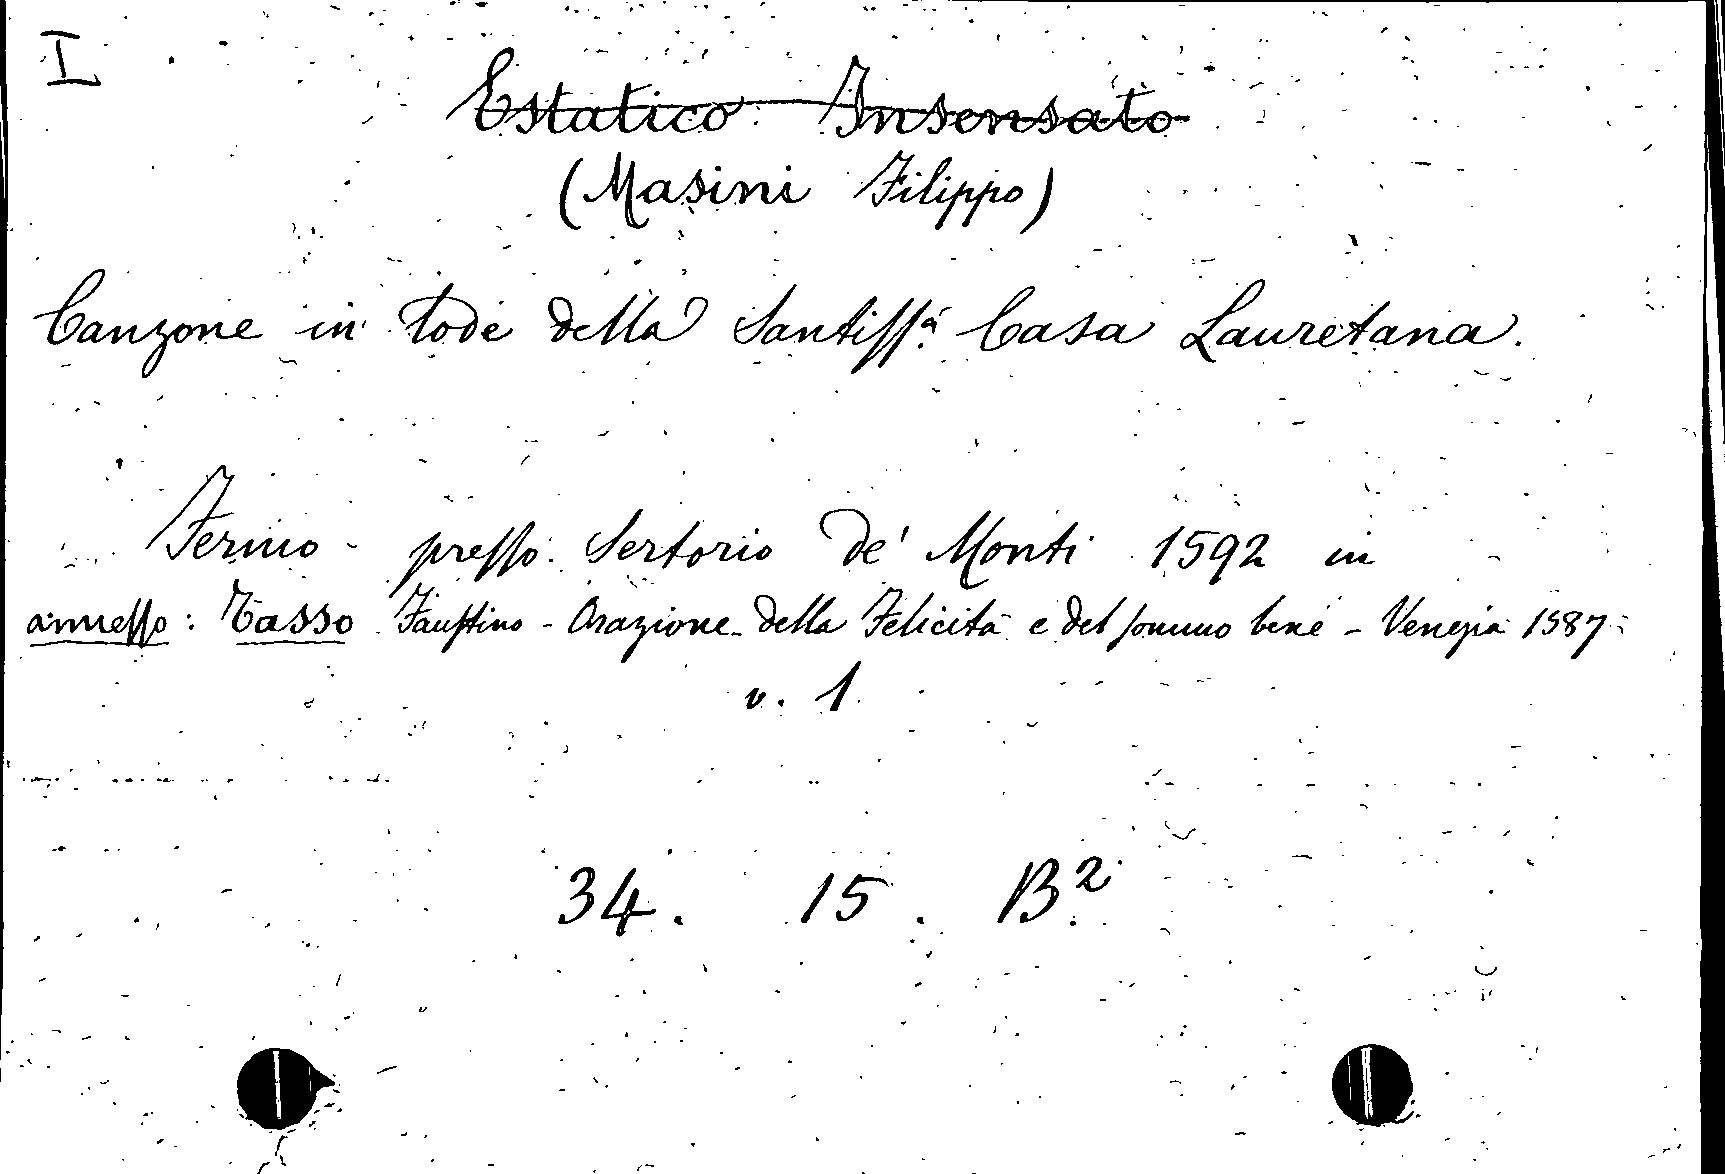 I
Estatico Insensato
(Masini Filippo)
Canzone in lode della Santissa. Casa Lauretana.
Fermo - presso Sertorio de' Monti 1592 in
annesso: Tasso Faustino - Orazione della Felicità e del sommo bene - Venezia 1587
v. 1
34. 15. B2.